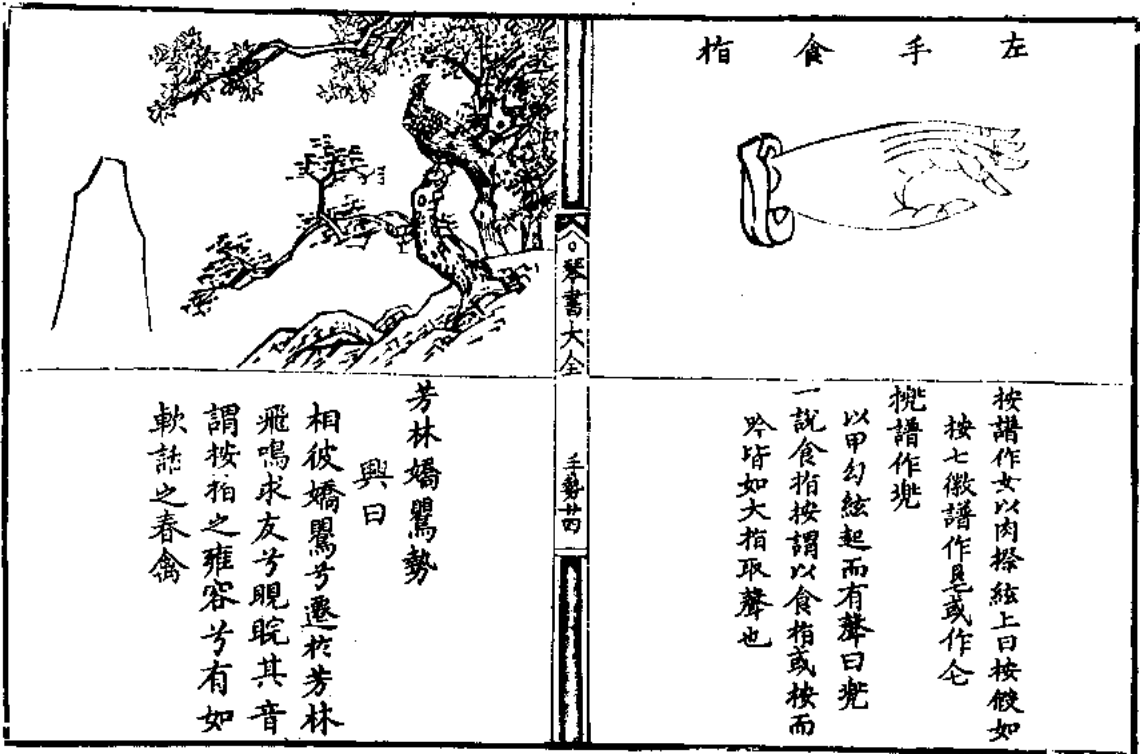 左手食指
按譜作女以肉捺絃上曰按假如
按七徽譜作
挑譜作兆
以甲勾絃起而有聲曰
一說食指按謂以食指或按而
吟皆如大指取聲也
琴書大全
手勢
芳林嬌鶯勢
興曰
相彼嬌鶯兮遷於芳林
飛鳴求友兮睍睆其音
謂按指之雍容兮有如
軟語之春禽